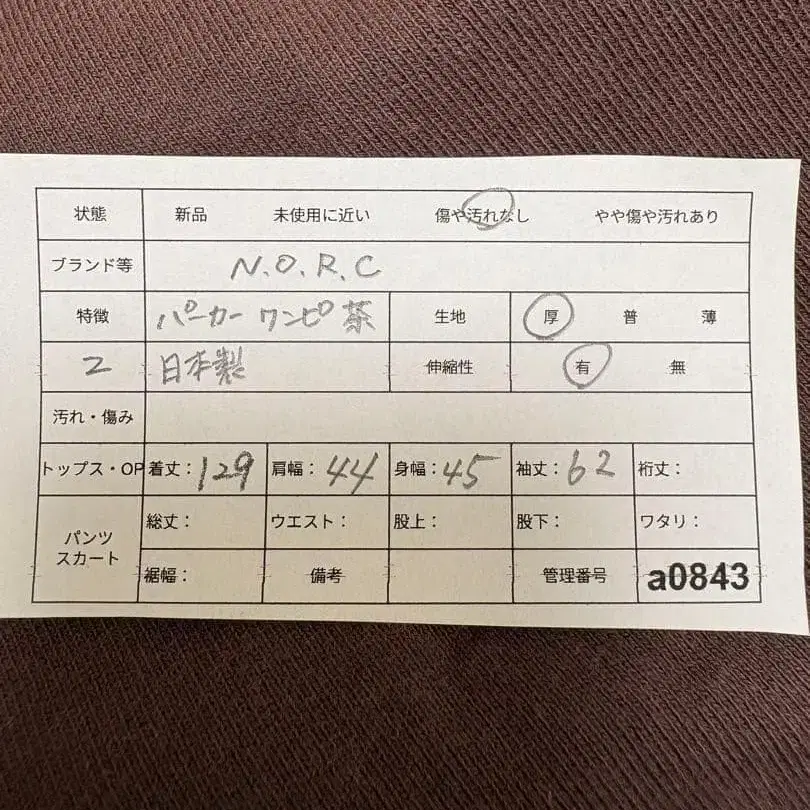 状態 新品 未使用に近い 傷や汚れなし やや傷や汚れあり
ブランド等 N.O.R.C
特徴 パーカー ワンピ 茶 生地 厚 普 薄
2 日本製 伸縮性 有 無
汚れ・傷み
トップス・OP 着丈：129 肩幅：44 身幅：45 袖丈：62 裄丈：
パンツ
スカート
総丈： ウエスト： 股上： 股下： ワタリ：
裾幅： 備考 管理番号 a0843